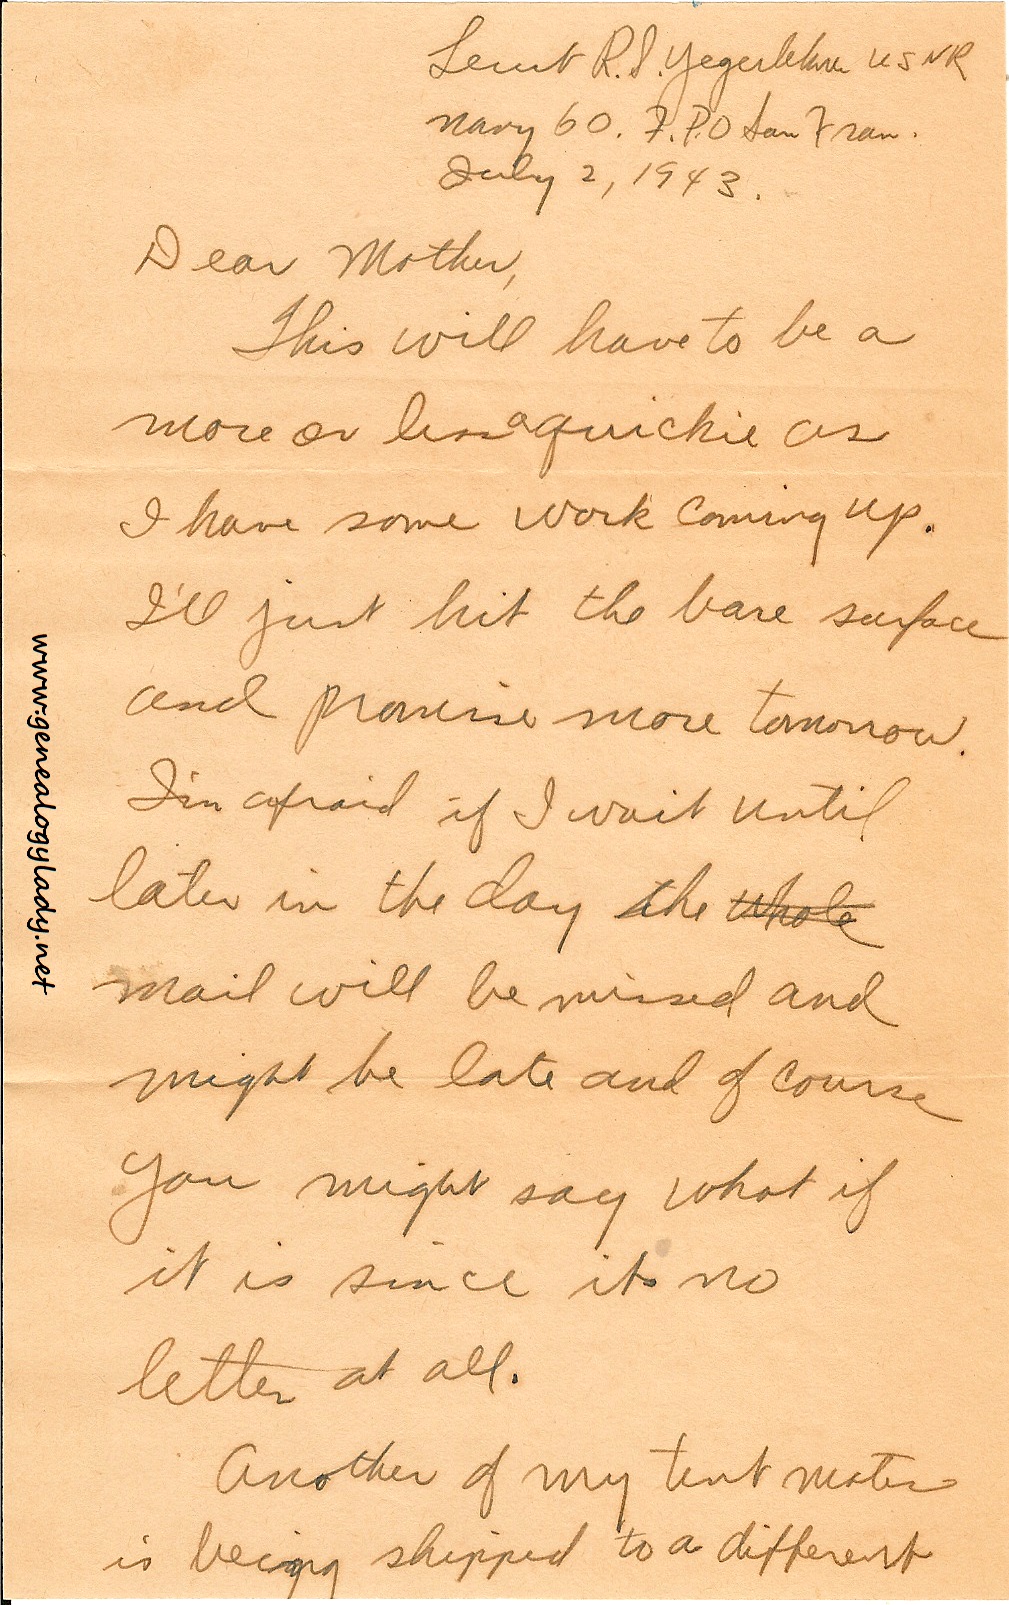 Lieut R.S. Yegerlehner USNR
Navy 60. F.P.O San Fran.
July 2, 1943.
Dear Mother,
This will have to be a
more or less a quickie as
I have some work coming up.
I'll just hit the bare surface
and promise more tomorrow.
I'm afraid if I wait until
later in the day the whole
mail will be missed and
might be late and of course
you might say what if
it is since its no
letter at all.
Another of my tent mates
is being shipped to a different
www.genealogylady.net